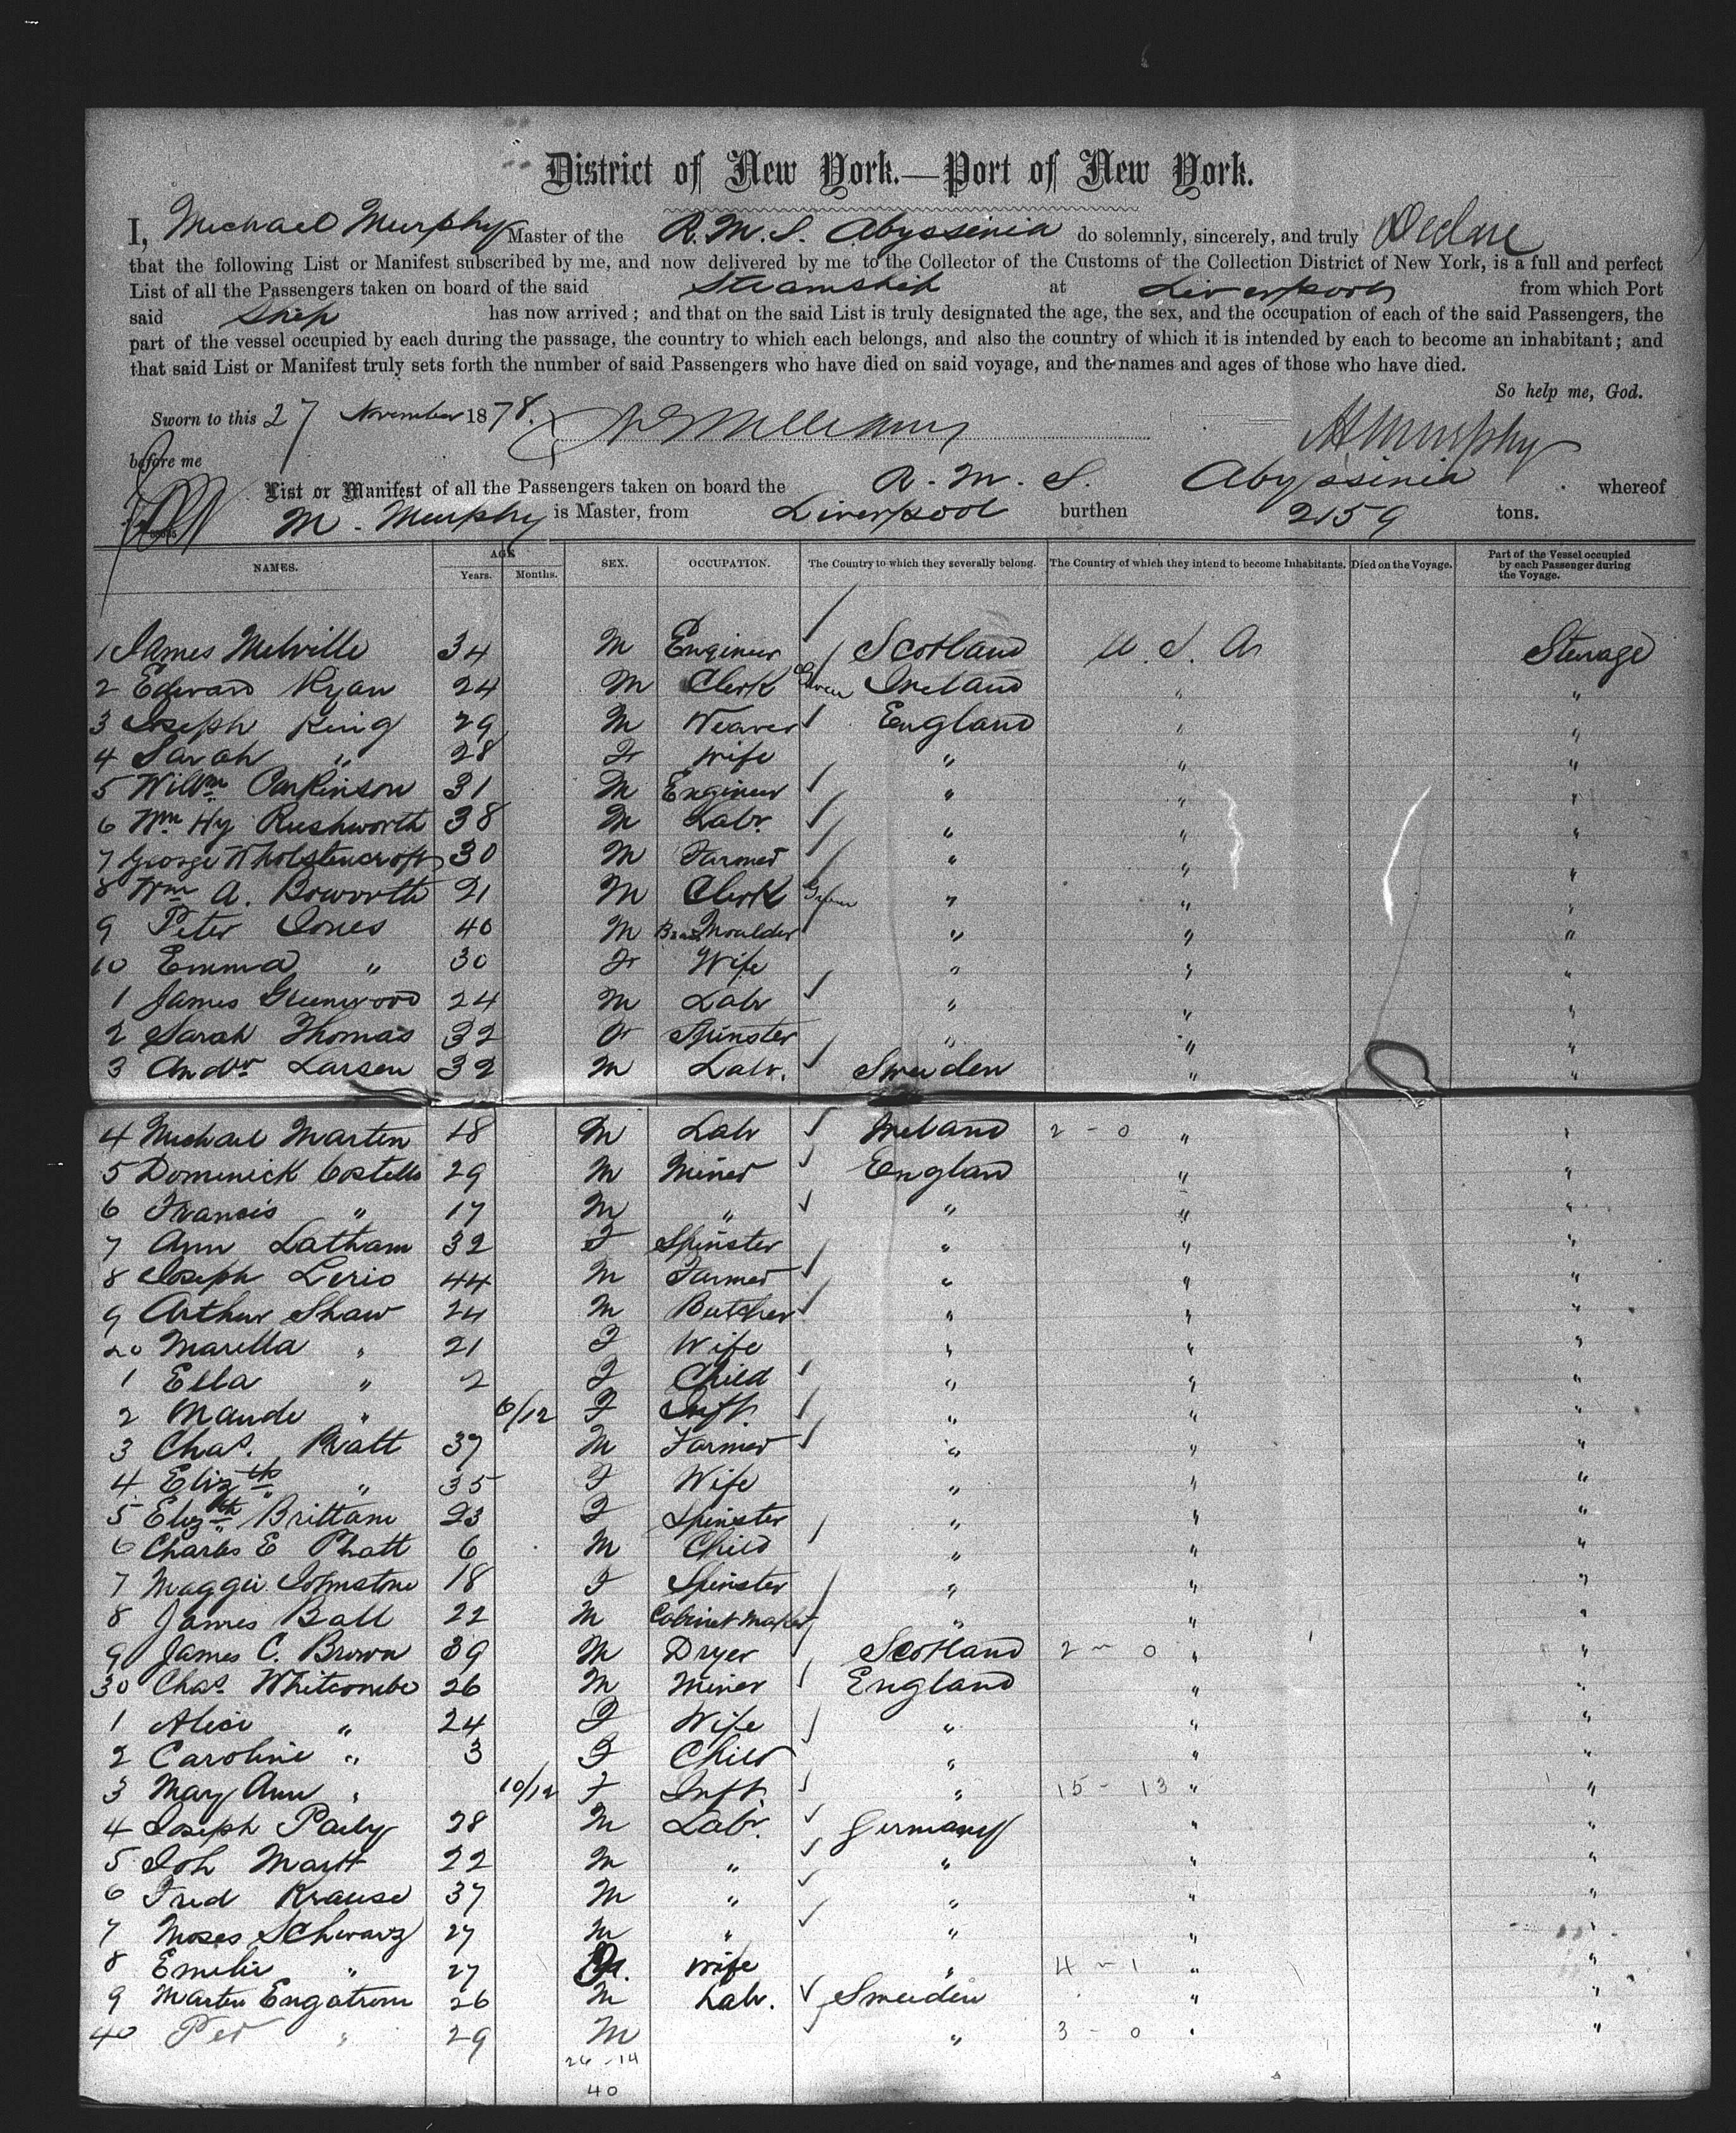 District of New York.—Port of New York.
I, Michael Murphy Master of the R.M.S. Abyssinia do solemnly, sincerely, and truly Declare
that the following List or Manifest subscribed by me, and now delivered by me to the Collector of the Customs of the Collection District of New York, is a full and perfect
List of all the Passengers taken on board of the said Steamship at Liverpool from which Port
said Ship has now arrived; and that on the said List is truly designated the age, the sex, and the occupation of each of the said Passengers, the
part of the vessel occupied by each during the passage, the country to which each belongs, and also the country of which it is intended by each to become an inhabitant; and
that said List or Manifest truly sets forth the number of said Passengers who have died on said voyage, and the names and ages of those who have died.
So help me, God.
Sworn to this 27 November 1878.
before me Murphy
List or Manifest of all the Passengers taken on board the R. M. S. Abyssinia whereof
M. Murphy is Master, from Liverpool burthen 2159 tons.
NAMES. AGE Years. Months. SEX. OCCUPATION. The Country to which they severally belong. The Country of which they intend to become Inhabitants. Died on the Voyage. Part of the Vessel occupied by each Passenger during the Voyage.
1 James Melville 34 M Engineer Scotland U. S. A Steerage
2 Edward Ryan 24 M Clerk Ireland " "
3 Joseph King 29 M Weaver England " "
4 Sarah " 28 F wife " " "
5 Willm Parkinson 31 M Engineer " " "
6 Wm Hy Rushworth 38 M Labr. " " "
7 George Wholstencroft 30 M Farmer " " "
8 Wm A. Boworth 21 M Clerk " " "
9 Peter Jones 40 M Brass Moulder " " "
10 Emma " 30 F Wife " " "
1 James Greenwood 24 M Labr " " "
2 Sarah Thomas 32 F Spinster " " "
3 Andw Larsen 32 M Labr. Sweden " "
4 Michael Martin 18 M Labr Ireland 2 - 0 " "
5 Dominick Costello 29 M Miner England " "
6 Francis " 17 M " " " "
7 Ann Latham 32 F Spinster " " "
8 Joseph 44 M Farmer " " "
9 Arthur Shaw 24 M Butcher " " "
20 Marella " 21 F Wife " " "
1 Ella " 2 F Child " " "
2 Maude " 6/12 F Inft. " " "
3 Chas. Pratt 37 M Farmer " " "
4 Elizth " 35 F Wife " " "
5 Elizth Brittam 23 F Spinster " " "
6 Charles E Pratt 6 M Child " " "
7 Maggie Johnstone 18 F Spinster " " "
8 James Ball 22 M Cabinet Maker " " "
9 James C. Brown 39 M Dryer Scotland 2 - 0 " "
30 Chas. Whitcombe 26 M Miner England " "
1 Alice " 24 F Wife " " "
2 Caroline " 3 F Child " " "
3 Mary Ann " 10/12 F Inft. " 15 - 13 " "
4 Joseph 28 M Labr. Germany " "
5 Joh 22 M " " " "
6 Fred Krause 37 M " " " "
7 Moses Schwarz 27 M " " " "
8 Emelie " 27 wife " 4 - 1 " "
9 Martin Engstrom 26 M Labr. Sweden " "
40 Per " 29 M " 3 - 0 " "
26 - 14
40